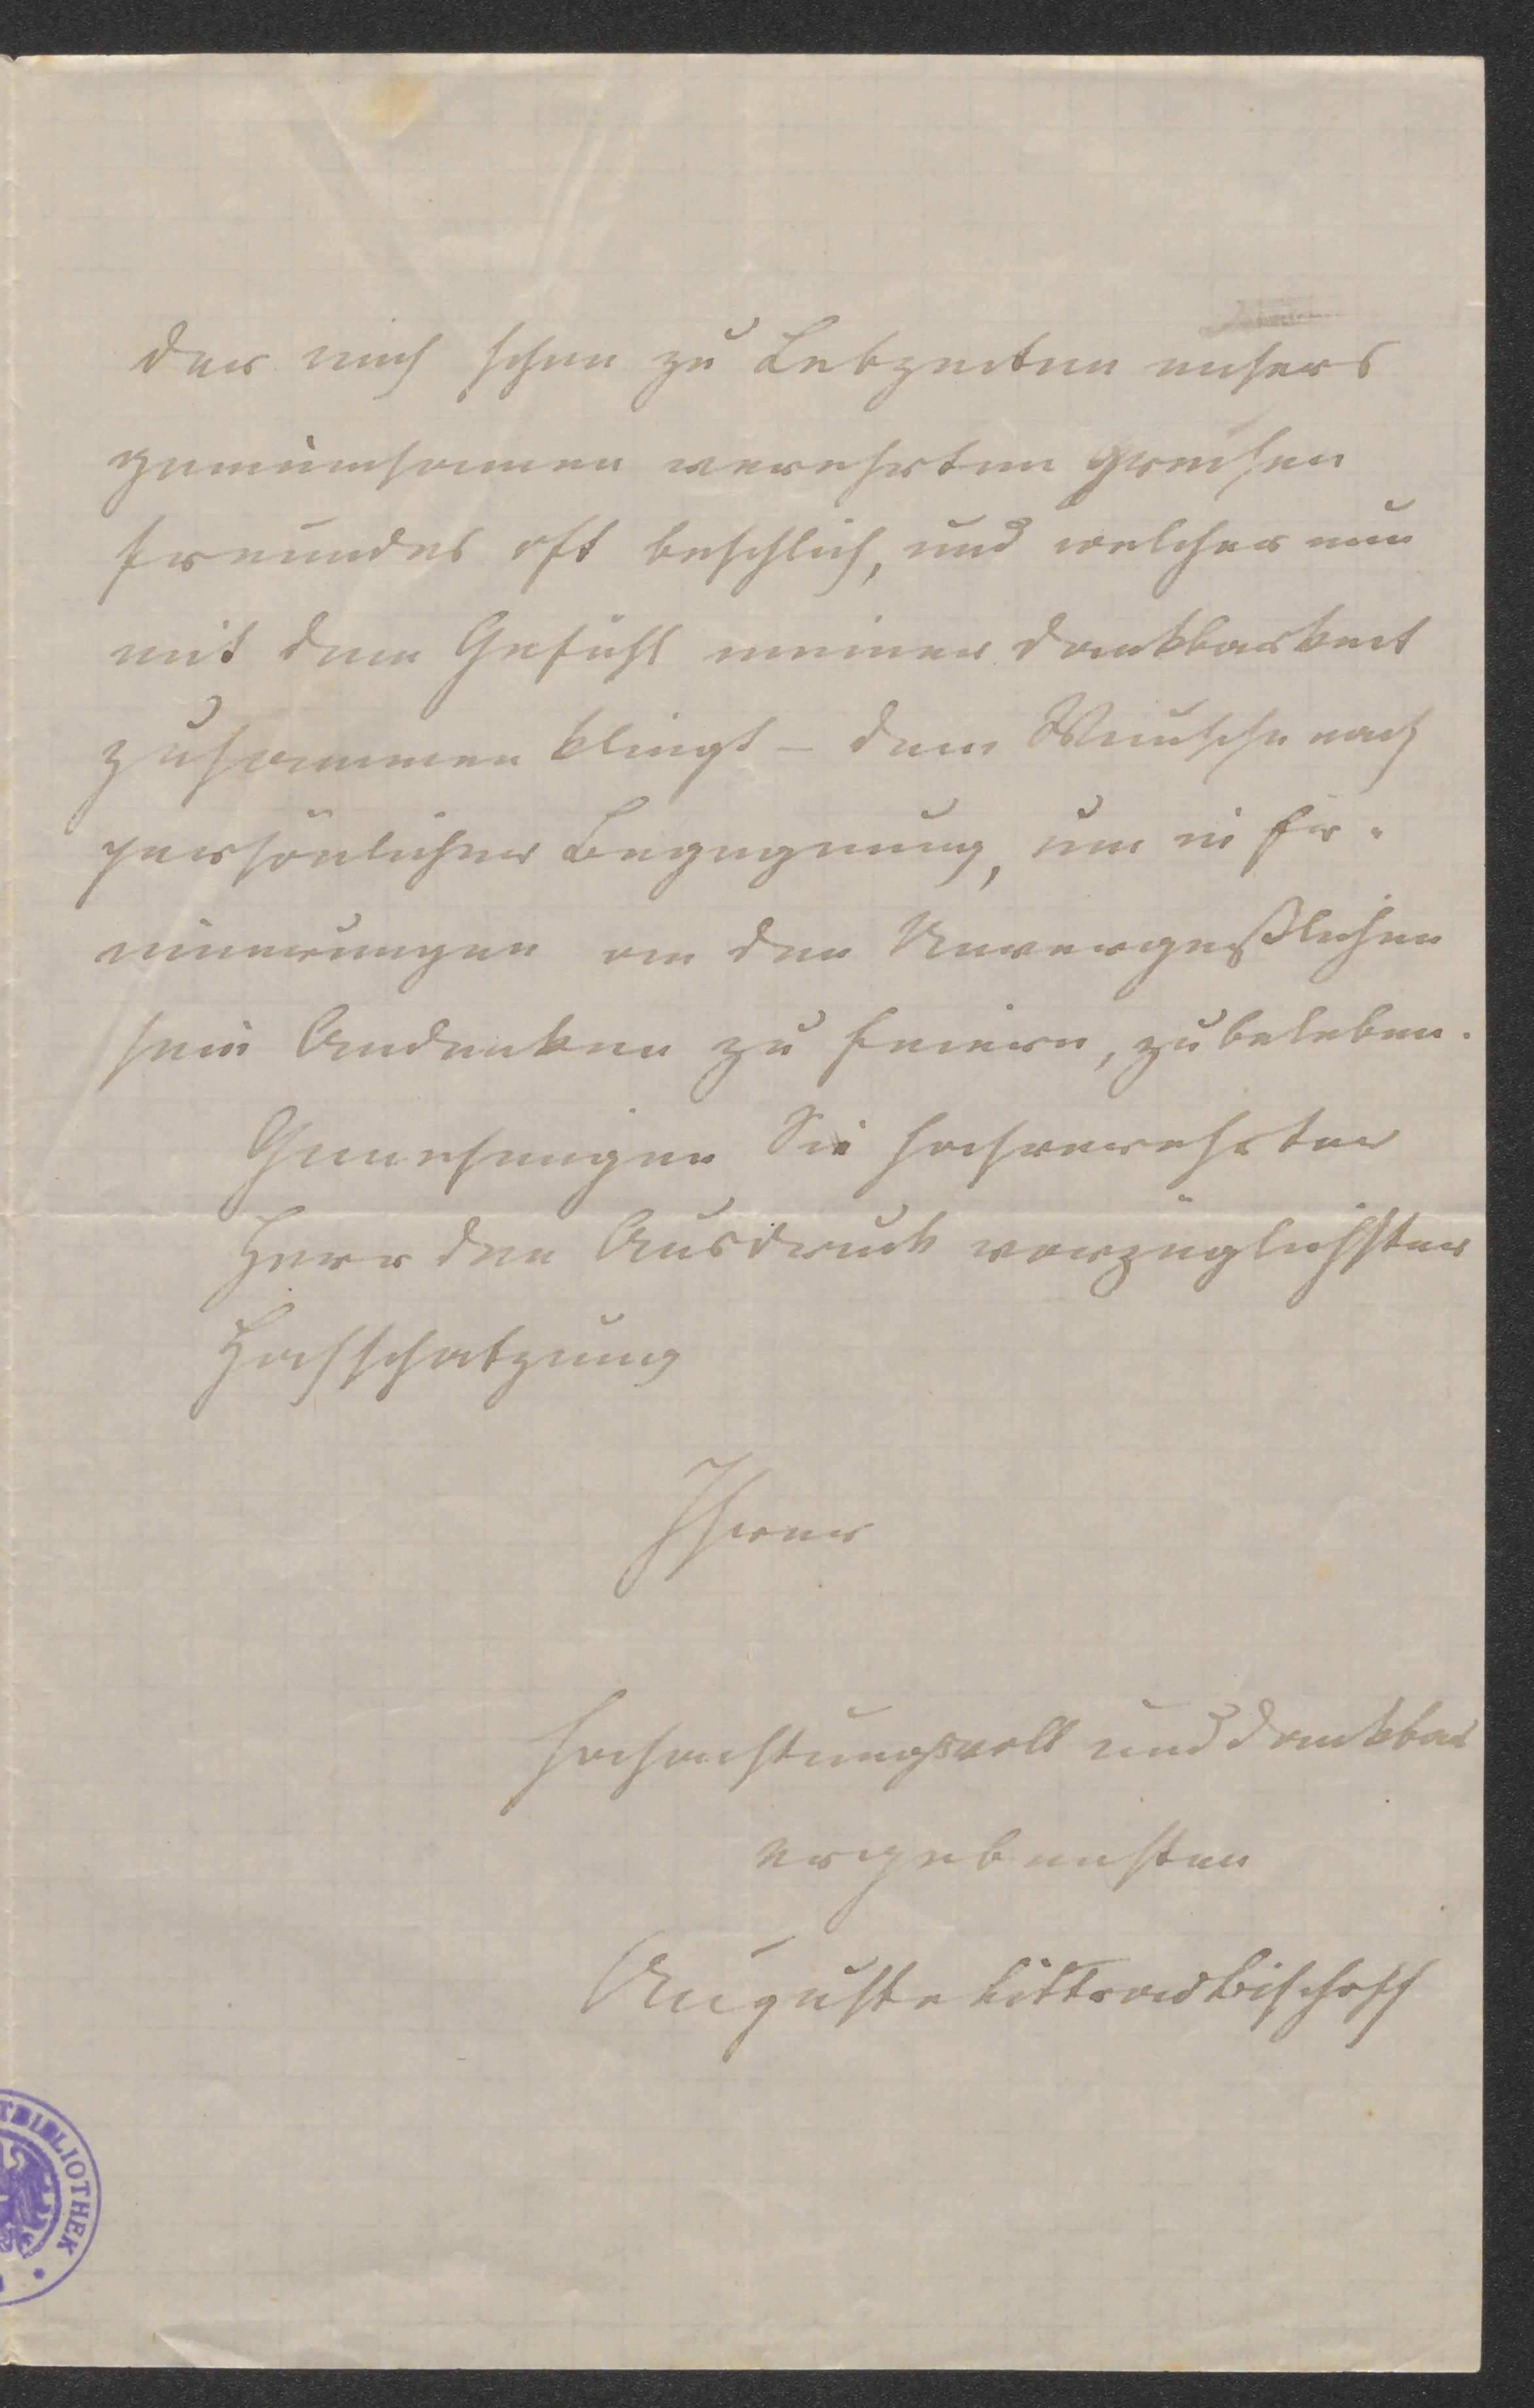 der mich schon zu Lebzeiten unsers
gemeinsamen verehrten greisen
Freundes oft beschlich, und welcher nun
mit dem Gefühl meiner Dankbarkeit
zusammen klingt – dem Wunsche nach
persönlicher Begegnung, um in Er-
innerungen an den Unvergeßlichen
sein Andenken zu feiern, zu beleben.
Genehmigen Sie hochverehrter
Herr den Ausdruck vorzüglichster
Hochschatzung
Ihrer
hochachtungsvoll und dankbar
ergebensten
Auguste Littrow Bischoff
TBIBLIOTHEK